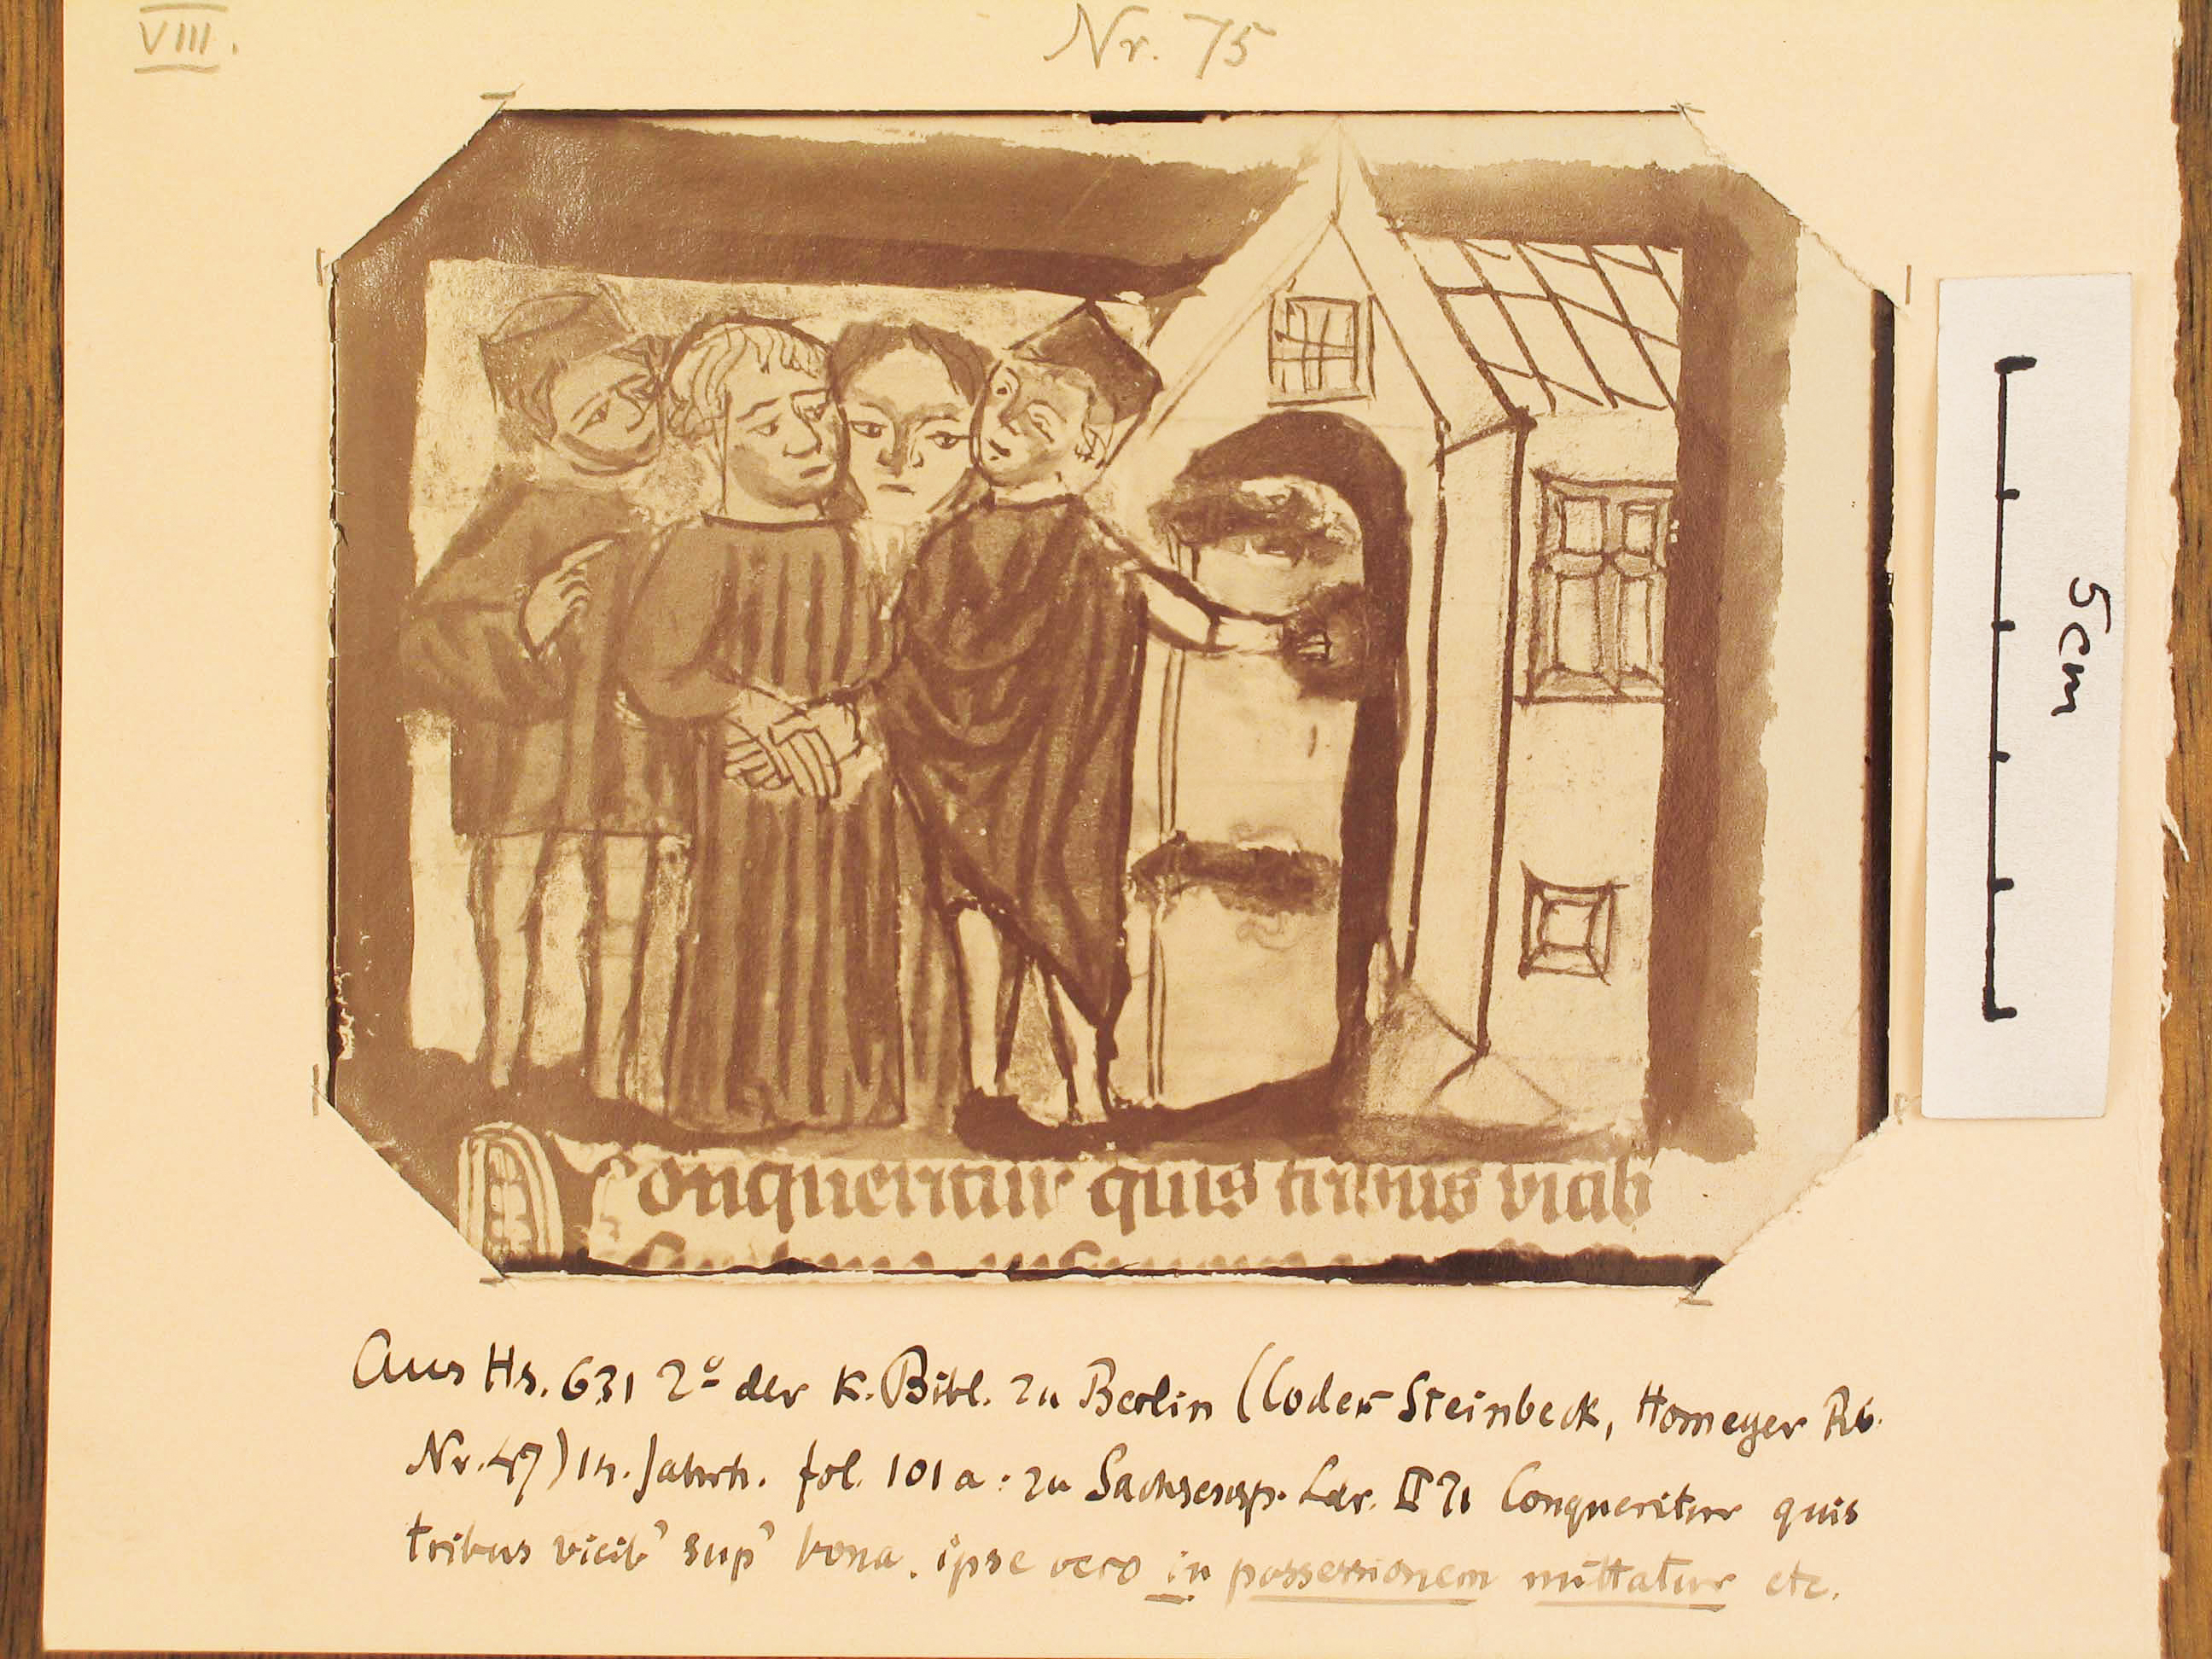 VIII.
Nr. 75
5cm
Conqueritur quis tribus vicib
Aus Hs. 631 2º der K. Bibl. zu Berlin (Codex Steinbeck, Homeyer Rb.
Nr. 47) 14. Jahrh. fol. 101a: zu Sachsensp. Ldr. II 71 Conqueritur quis
tribus vicib' sup' bona. ipse vero in possessionem mittatur etc.